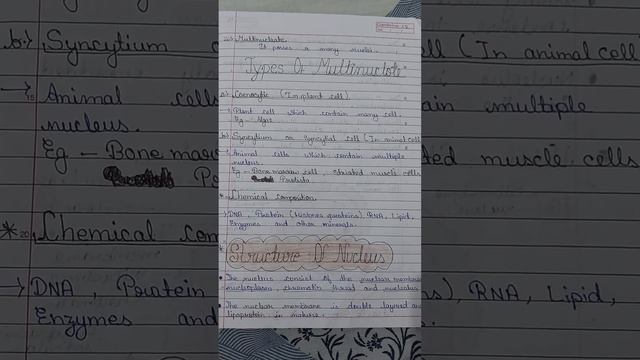 iii) Multinucleate
It posses a many nuclei.
Types Of Multinuclei
a.) Coenocytic (In plant cell)
→ Plant cell which contain many cell.
Eg - Algae
b.) Syncytium or Syncytial cell (In animal cell
→ Animal cells which contain multiple
nucleus.
Eg - Bone marrow cell, striated muscle cells
Protista
* Chemical composition
→ DNA, Protein (Histones proteins), RNA, Lipid,
Enzymes and other minerals.
Structure Of Nucleus
• The nucleus consist of the nuclear membrane
nucleoplasm, chromatin thread and nucleolus
• The nuclear membrane is double layered and
lipoprotein in nature.